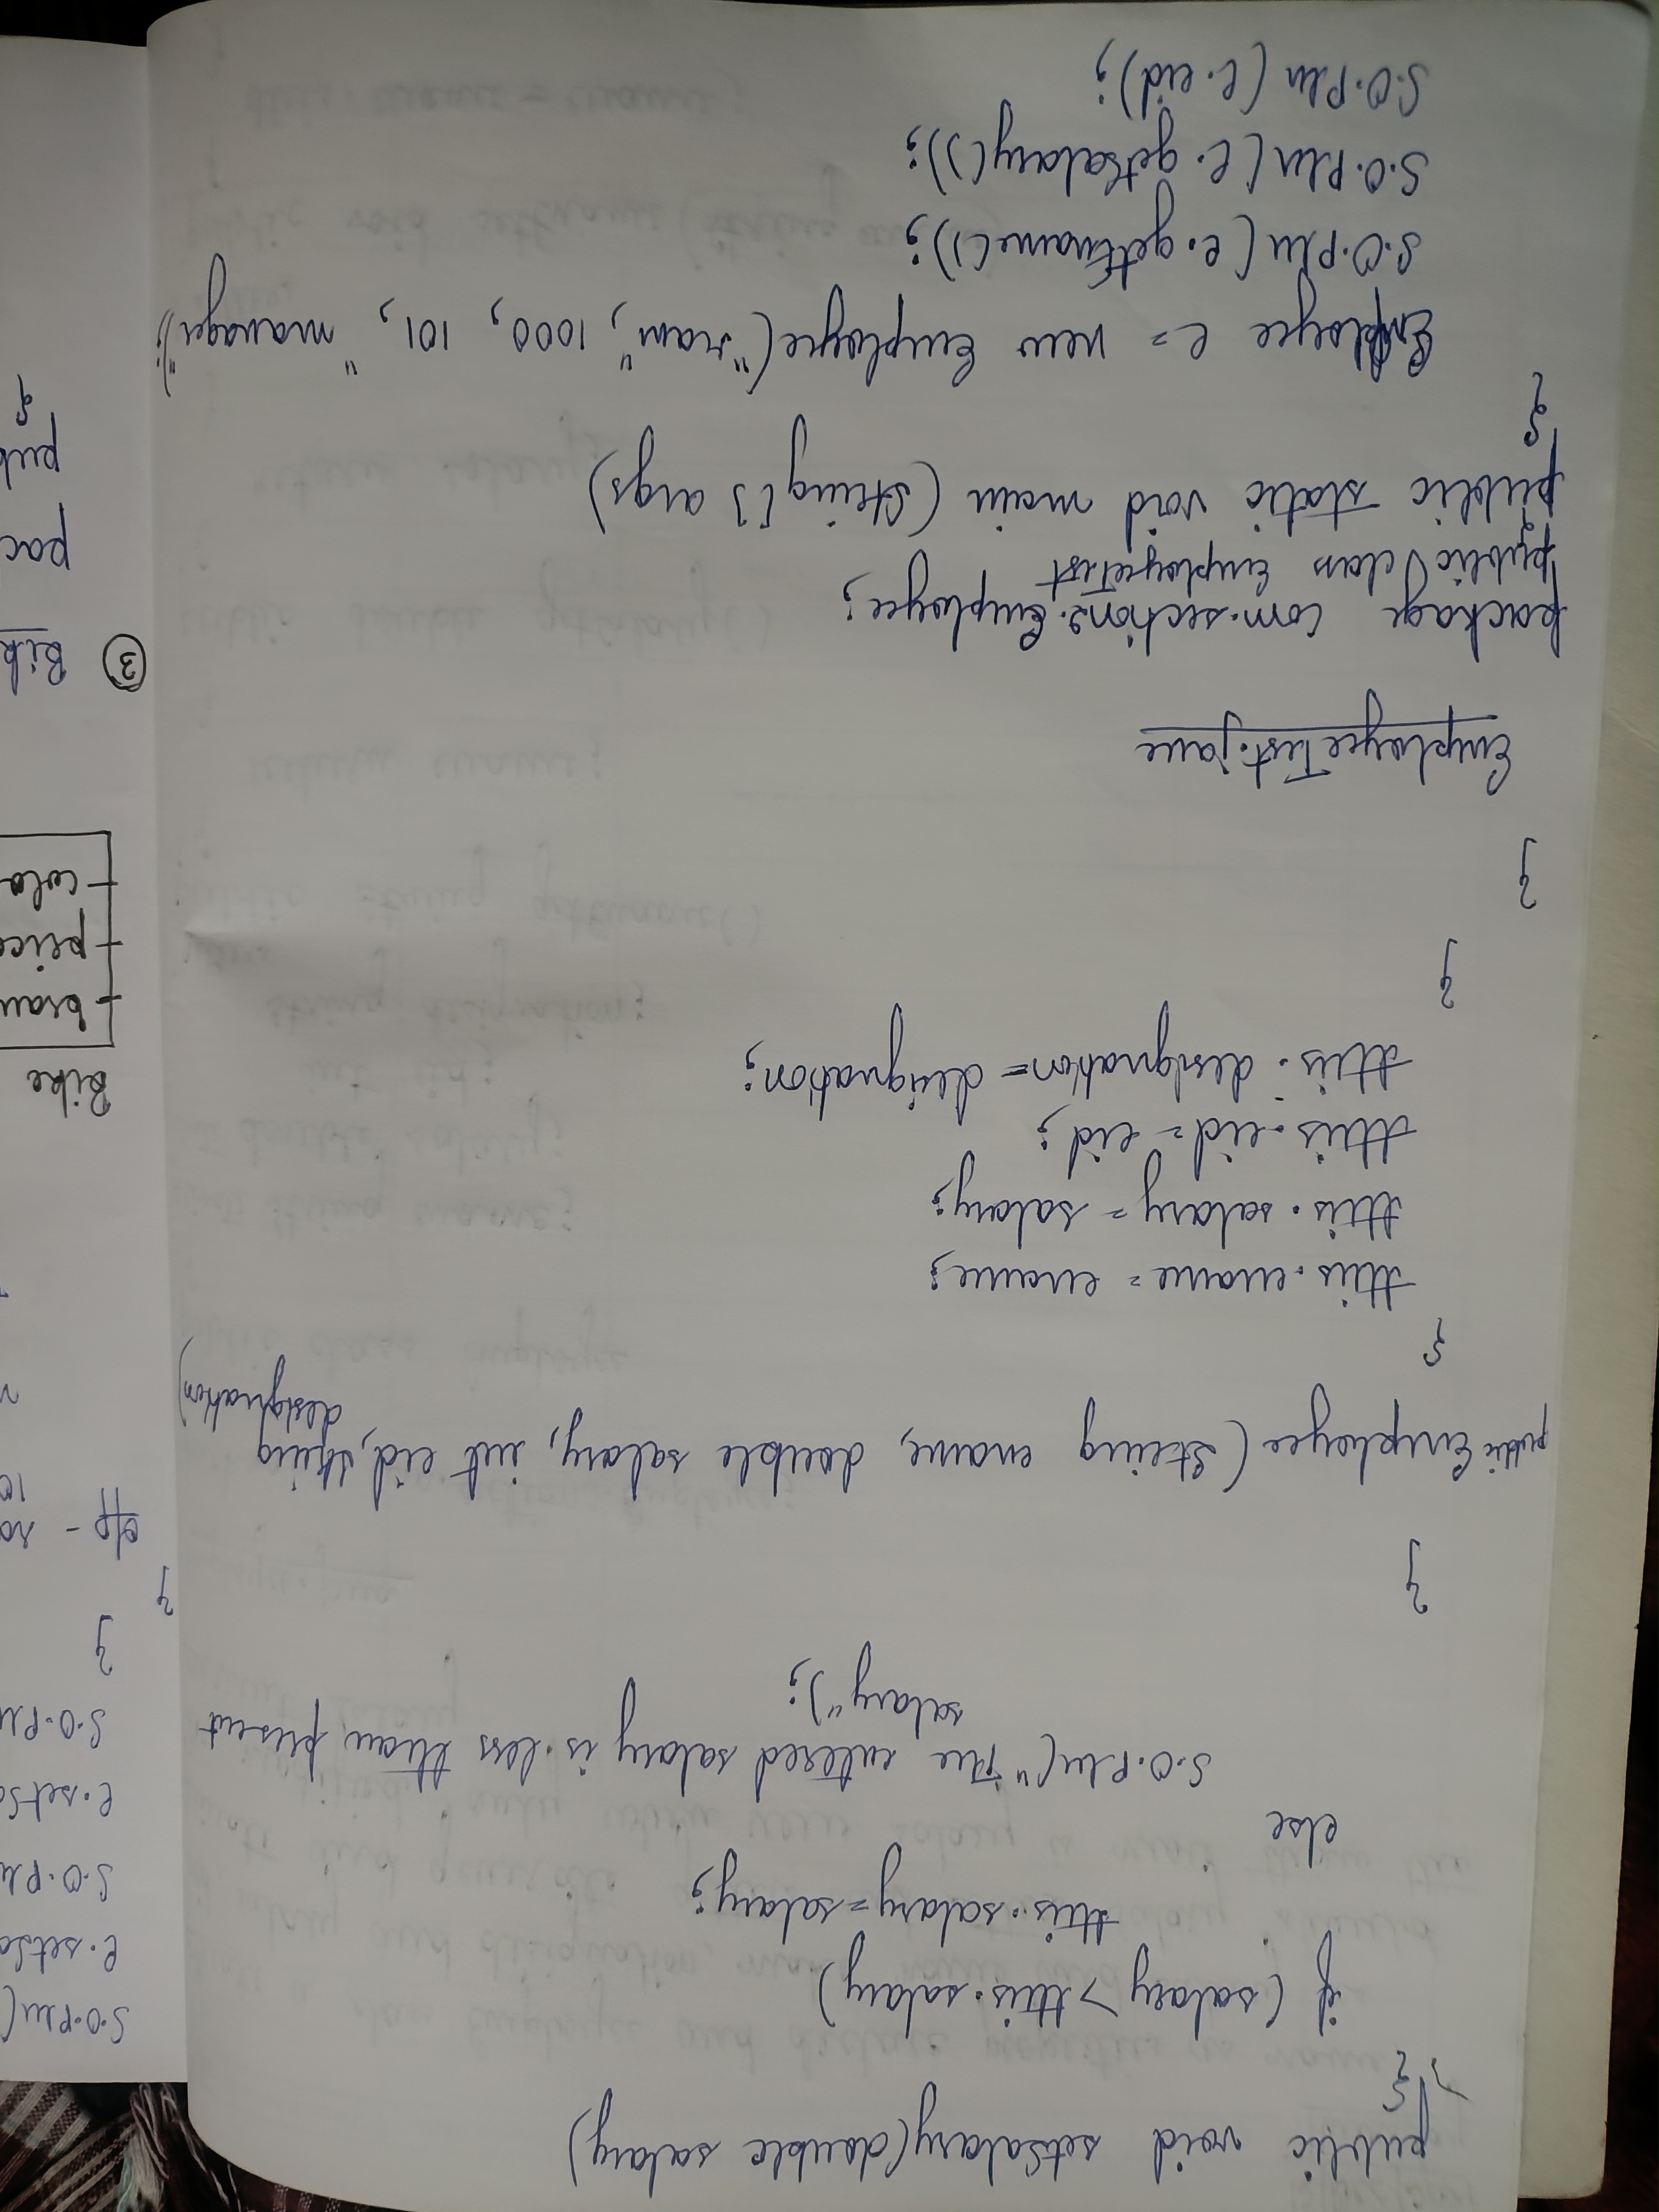 public void setSalary(double salary)
{
if (salary > this.salary)
this.salary = salary;
else
S.O.Pln("The entered salary is less than present
salary");
}
public Employee (String ename, double salary, int eid, String
designation)
{
this.ename = ename;
this.salary = salary;
this.eid = eid;
this.designation = designation;
}
}
EmployeeTest.java
package com.section2.Employee;
public class EmployeeTest
{
public static void main (String [] args)
{
Employee e = new Employee("ram", 1000, 101, "manager");
S.O.Pln (e.getEname());
S.O.Pln (e.getSalary());
S.O.Pln (e.eid);
S.O.Pln(
e.setSa
S.O.Pln
e.setSa
S.O.Pln
}
}
o/p -
10
Bike
bran
price
colo
3 Bik
pac
pub
{